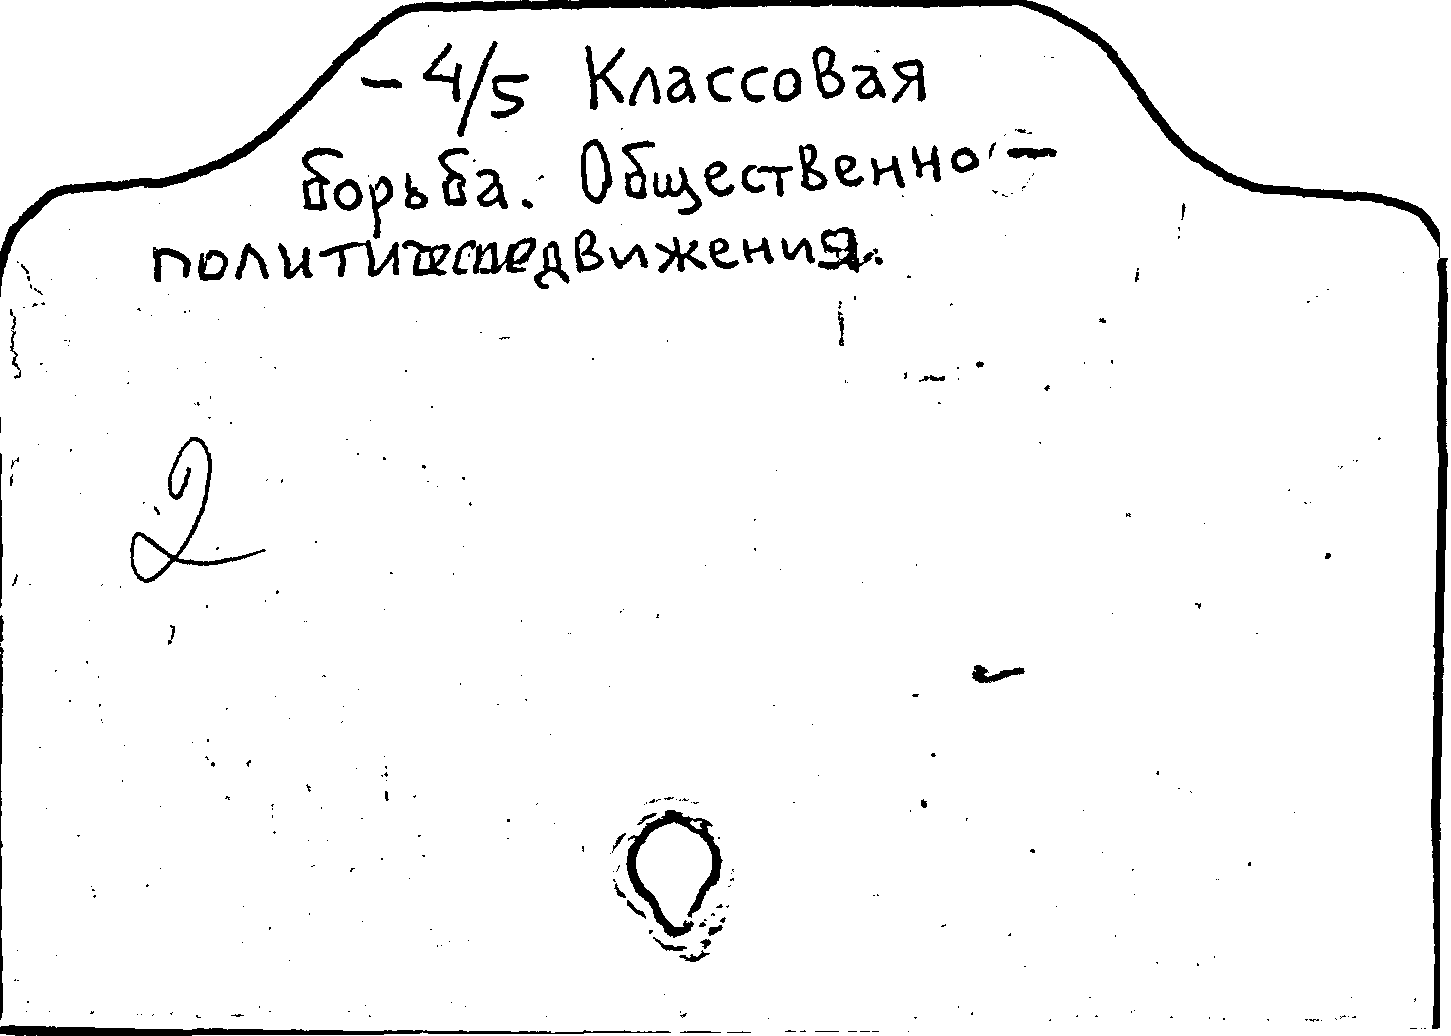 - 4/5 Классовая
борьба. Общественно-
политические движения.
2